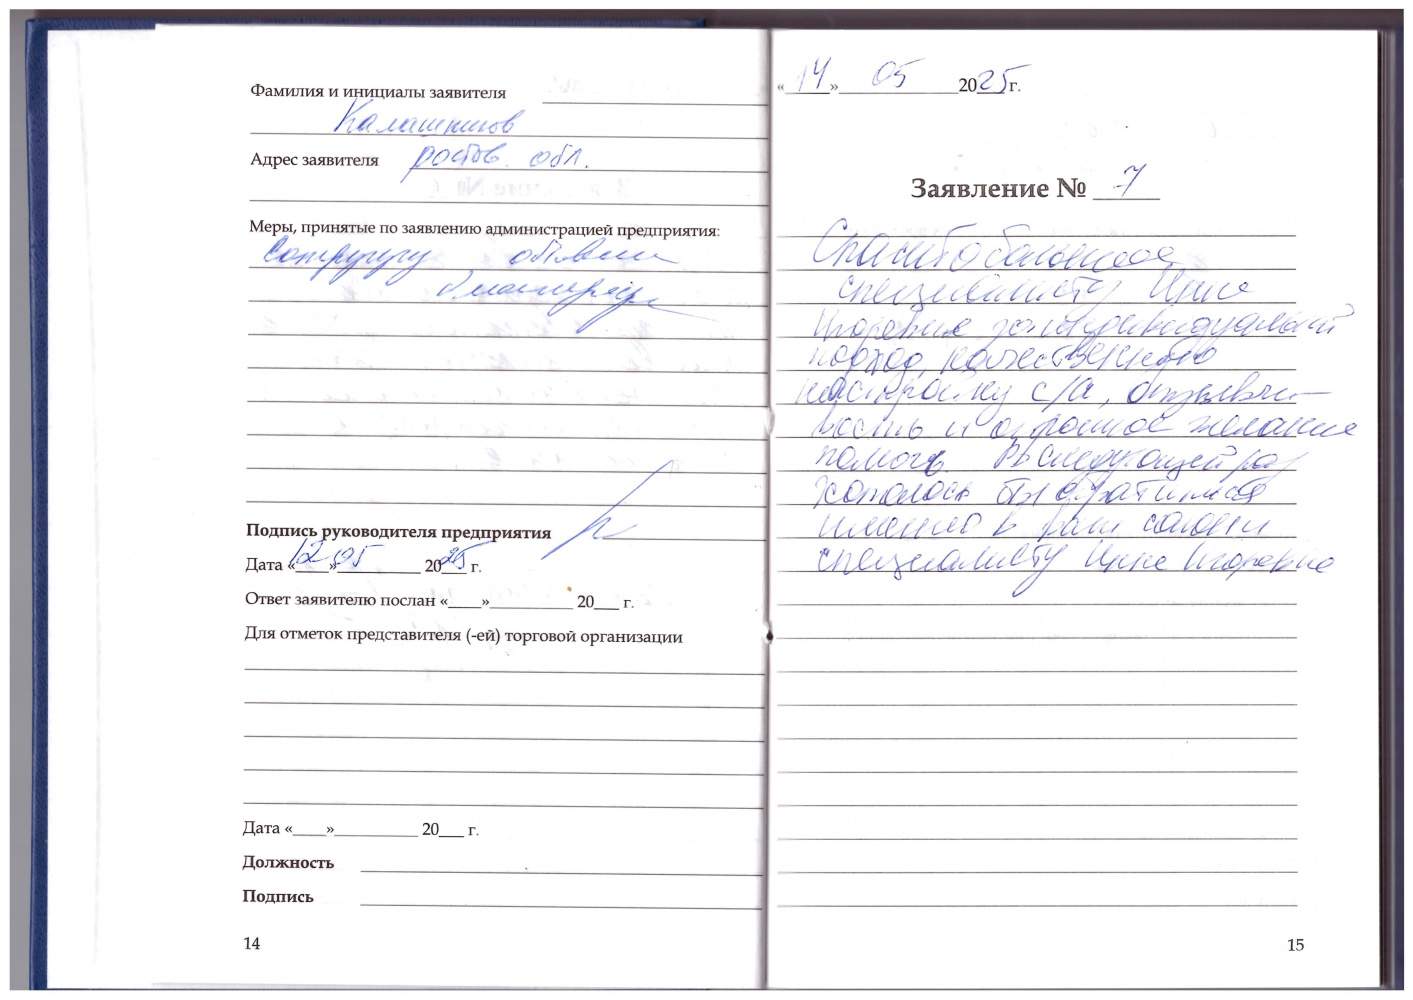 Фамилия и инициалы заявителя
Калашников
Адрес заявителя ростов. обл.
Меры, принятые по заявлению администрацией предприятия:
Сотруднику объявлена
благодарность
Подпись руководителя предприятия
Дата «12» 05 2025 г.
Ответ заявителю послан «____»__________ 20___ г.
Для отметок представителя (-ей) торговой организации
Дата «____»__________ 20___ г.
Должность
Подпись
14
«14» 05 2025 г.
Заявление № 7
Спасибо большое
специалисту Инне
Игоревне за индивидуальный
подход, качественную
настройку с/а, отзывчи-
вость и огромное желание
помочь. В следующей раз
хотелось бы обратиться
именно в ваш салон и
специалисту Инне Игоревне
15